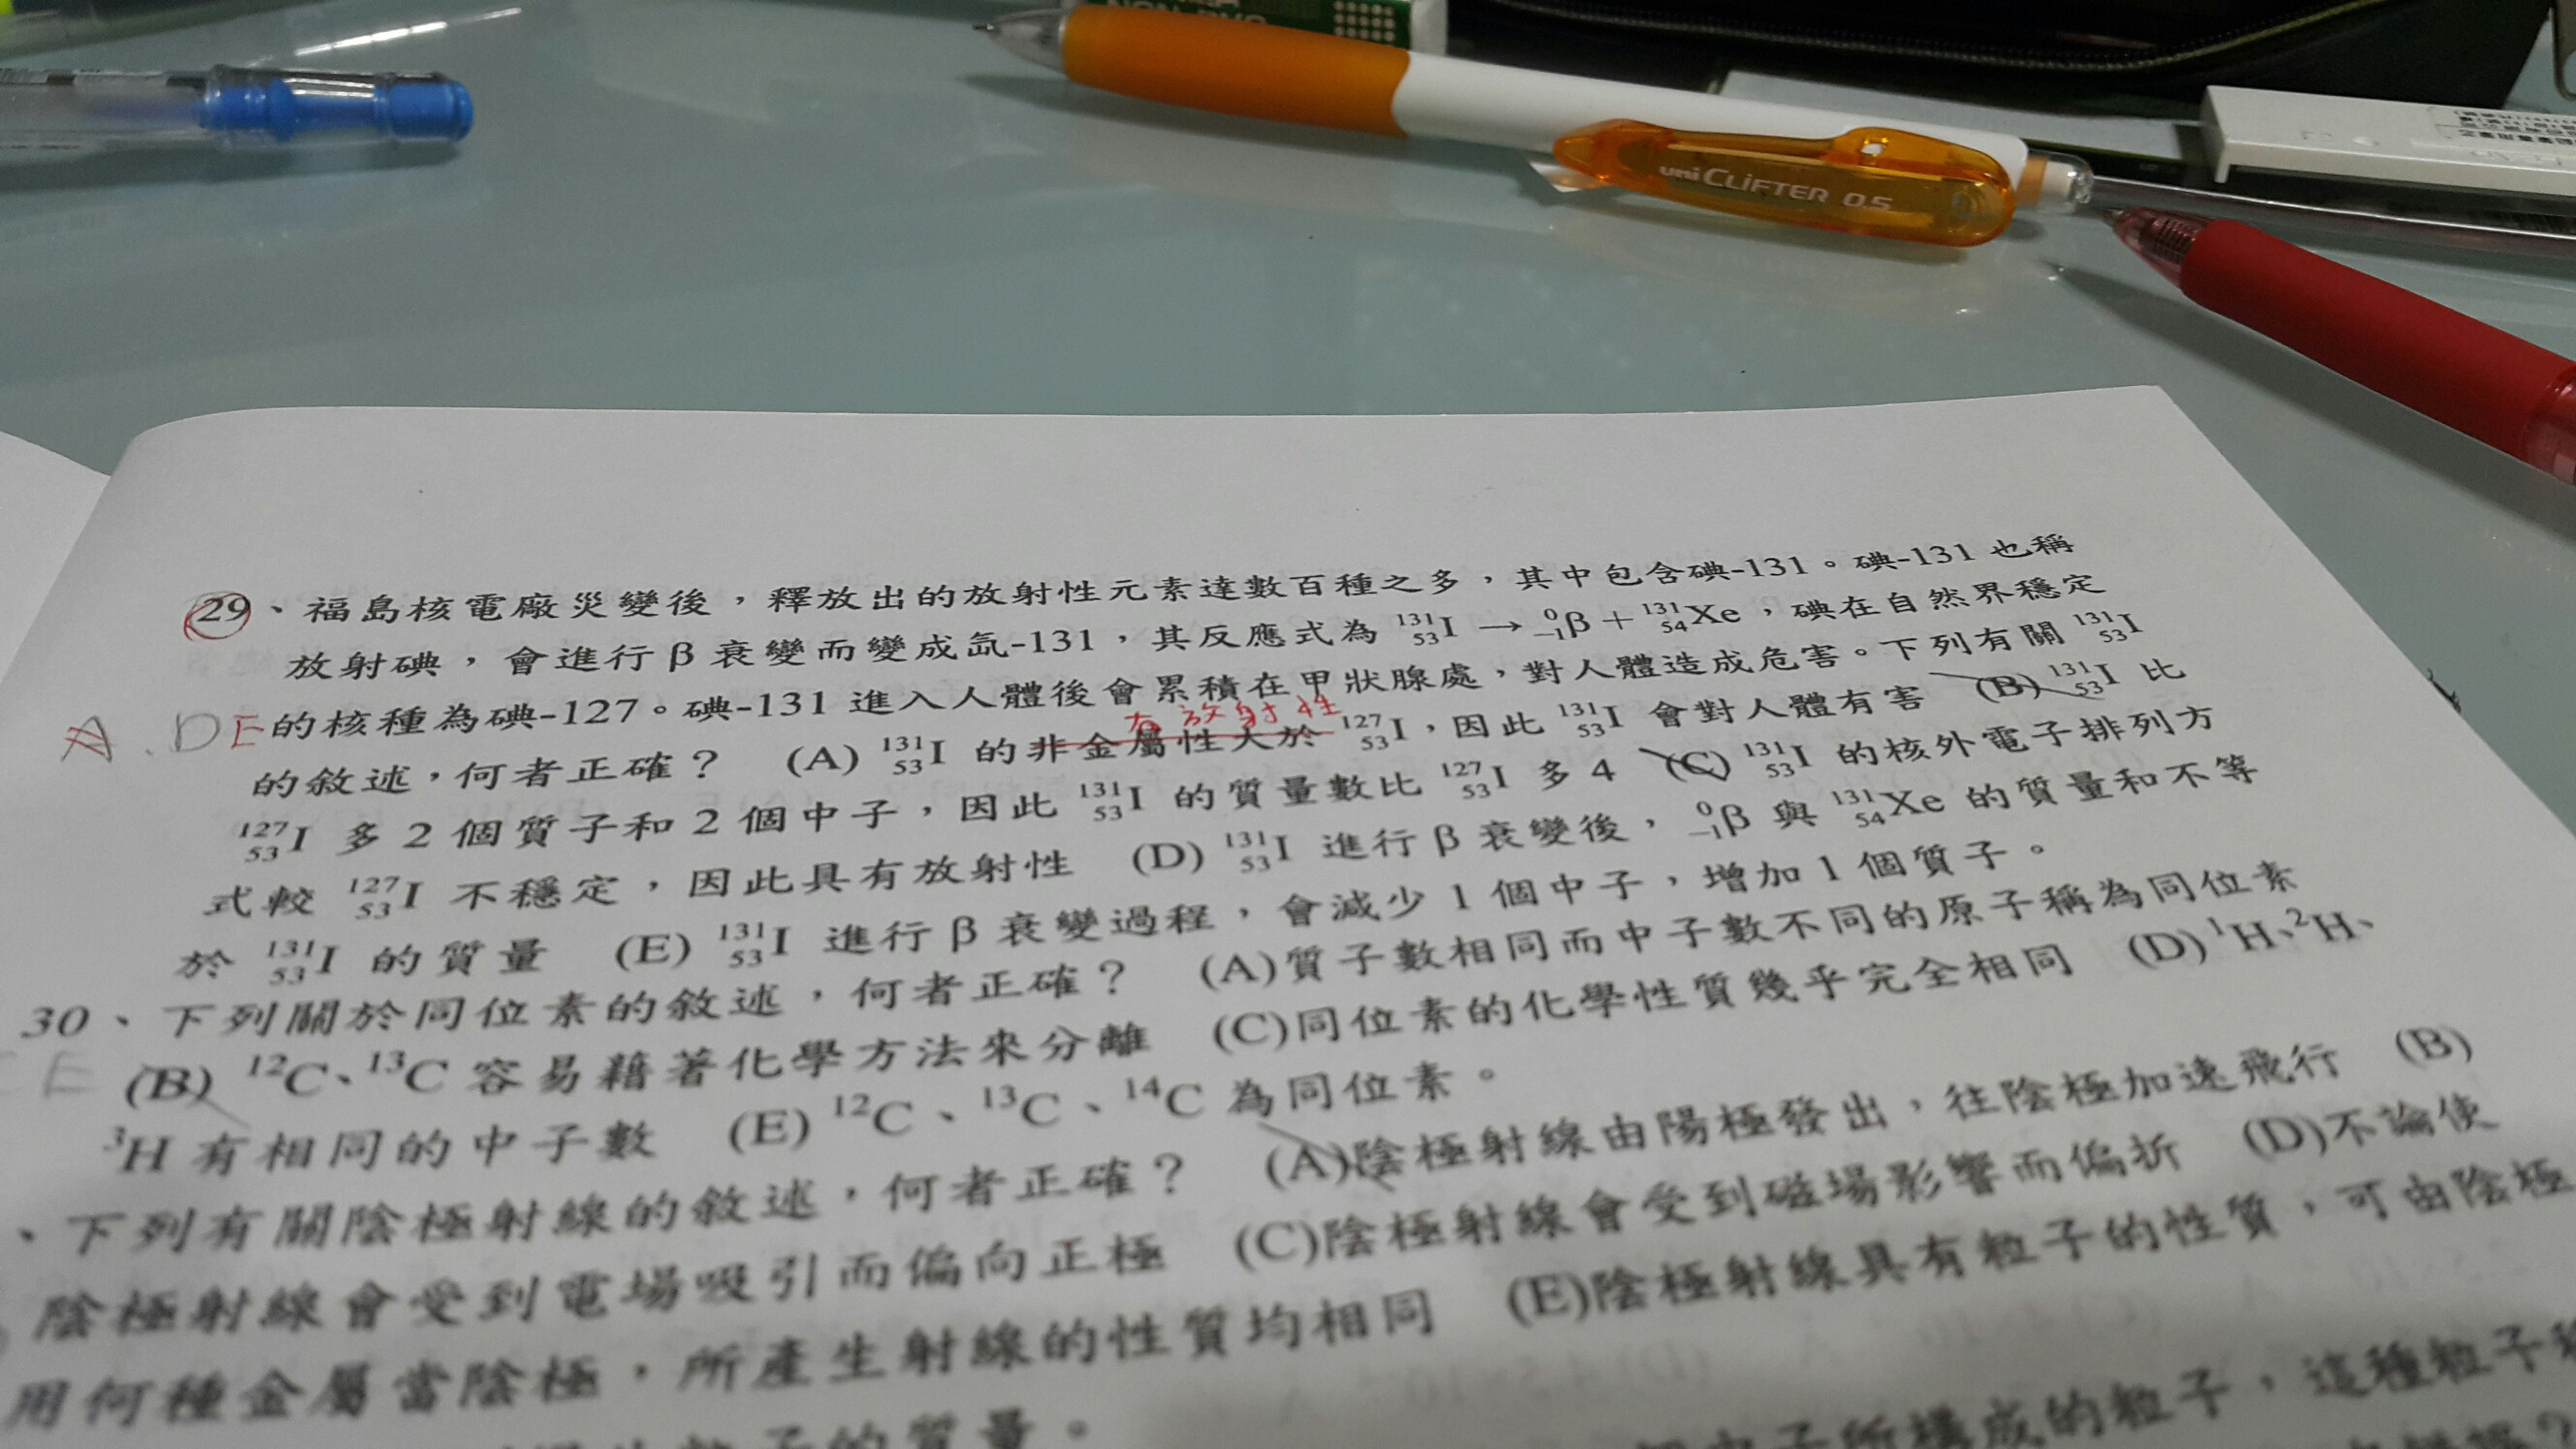 uni CLiFTER 0.5
29、福島核電廠災變後，釋放出的放射性元素達數百種之多，其中包含碘-131。碘-131 也稱
放射碘，會進行 β 衰變而變成氙-131，其反應式為 ¹³¹₅₃I → ⁰₋₁β + ¹³¹₅₄Xe，碘在自然界穩定
A.DE
的核種為碘-127。碘-131 進入人體後會累積在甲狀腺處，對人體造成危害。下列有關 ¹³¹₅₃I
有放射性
的敘述，何者正確？ (A) ¹³¹₅₃I 的非金屬性大於 ¹²⁷₅₃I，因此 ¹³¹₅₃I 會對人體有害 (B) ¹³¹₅₃I 比
¹²⁷₅₃I 多 2 個質子和 2 個中子，因此 ¹³¹₅₃I 的質量數比 ¹²⁷₅₃I 多 4 (C) ¹³¹₅₃I 的核外電子排列方
式較 ¹²⁷₅₃I 不穩定，因此具有放射性 (D) ¹³¹₅₃I 進行 β 衰變後，⁰₋₁β 與 ¹³¹₅₄Xe 的質量和不等
於 ¹³¹₅₃I 的質量 (E) ¹³¹₅₃I 進行 β 衰變過程，會減少 1 個中子，增加 1 個質子。
30、下列關於同位素的敘述，何者正確？ (A)質子數相同而中子數不同的原子稱為同位素
E
(B) ¹²C、¹³C 容易藉著化學方法來分離 (C)同位素的化學性質幾乎完全相同 (D) ¹H、²H、
³H 有相同的中子數 (E) ¹²C、¹³C、¹⁴C 為同位素。
、下列有關陰極射線的敘述，何者正確？ (A)陰極射線由陽極發出，往陰極加速飛行 (B)
陰極射線會受到電場吸引而偏向正極 (C)陰極射線會受到磁場影響而偏折 (D)不論使
用何種金屬當陰極，所產生射線的性質均相同 (E)陰極射線具有粒子的性質，可由陰極
粒子的質量。
中子所構成的粒子，這種粒子